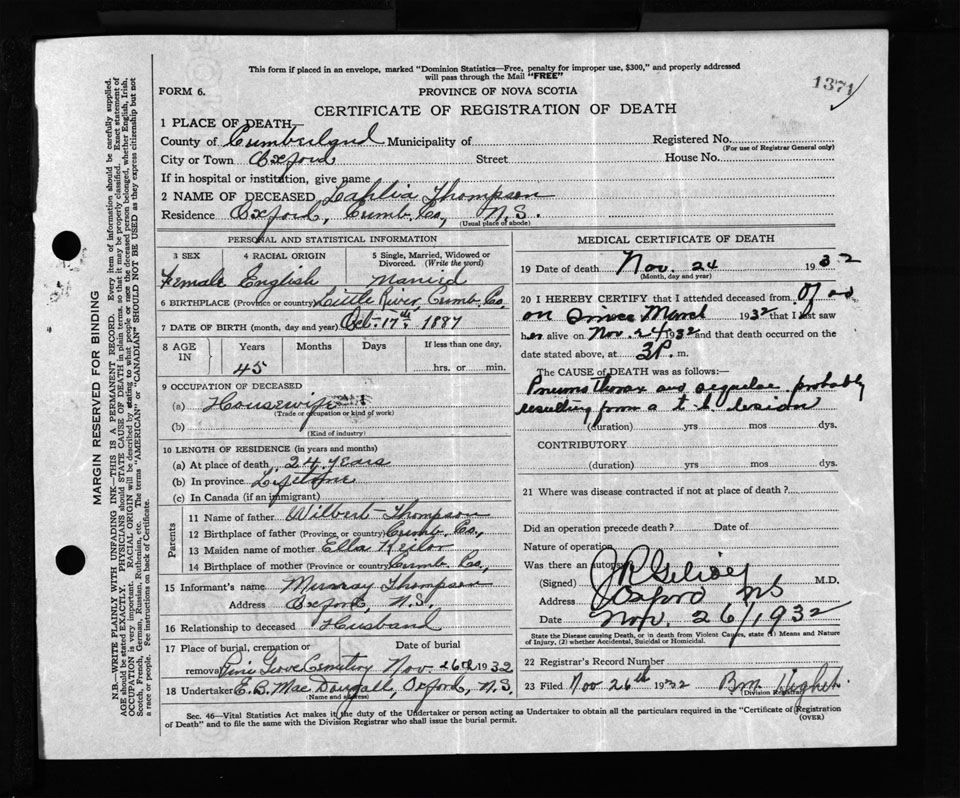 This form if placed in an envelope, marked "Dominion Statistics—Free, penalty for improper use, $300," and properly addressed
will pass through the Mail "FREE"
1371
FORM 6.
PROVINCE OF NOVA SCOTIA
CERTIFICATE OF REGISTRATION OF DEATH
1 PLACE OF DEATH—
County of Cumberland Municipality of Registered No.
(For use of Registrar General only)
City or Town Oxford Street House No.
If in hospital or institution, give name
2 NAME OF DECEASED Lahlia Thompson
Residence Oxford, Cumb. Co, N.S.
(Usual place of abode)
PERSONAL AND STATISTICAL INFORMATION
3 SEX 4 RACIAL ORIGIN 5 Single, Married, Widowed or
Divorced. (Write the word)
Female English Married
6 BIRTHPLACE (Province or country) Little River Cumb. Co.
7 DATE OF BIRTH (month, day and year) Oct. 17th, 1887
8 AGE IN Years Months Days If less than one day,
45 hrs. or min.
9 OCCUPATION OF DECEASED
(a) Housewife
(Trade or occupation or kind of work)
(b)
(Kind of industry)
10 LENGTH OF RESIDENCE (in years and months)
(a) At place of death 24 years
(b) In province Lifetime
(c) In Canada (if an immigrant)
Parents
11 Name of father Wilbert Thompson
12 Birthplace of father (Province or country) Cumb. Co.,
13 Maiden name of mother Ella Keilor
14 Birthplace of mother (Province or country) Cumb. Co.,
15 Informant's name Murray Thompson
Address Oxford, N.S.
16 Relationship to deceased Husband
17 Place of burial, cremation or Date of burial
removal Pine Grove Cemetery Nov. 26th 1932
18 Undertaker E. B. MacDougall, Oxford, N.S.
(Name and address)
MEDICAL CERTIFICATE OF DEATH
19 Date of death Nov. 24 1932
(Month, day and year)
20 I HEREBY CERTIFY that I attended deceased from Off and
on since March 1932 that I last saw
her alive on Nov. 24 1932 and that death occurred on the
date stated above, at 3 P. m.
The CAUSE of DEATH was as follows:—
Pneumothorax and sequelae probably
resulting from a t b lesion
(duration) yrs mos dys.
CONTRIBUTORY
(duration) yrs mos dys.
21 Where was disease contracted if not at place of death?
Did an operation precede death? Date of
Nature of operation
Was there an autopsy
(Signed) M.D.
Address Oxford NS
Date Nov. 26/1932
State the Disease causing Death, or in death from Violent Causes, state (1) Means and Nature
of Injury, (2) whether Accidental, Suicidal or Homicidal.
22 Registrar's Record Number
23 Filed Nov 26th 1932
(Division Registrar)
Sec. 46—Vital Statistics Act makes it the duty of the Undertaker or person acting as Undertaker to obtain all the particulars required in the "Certificate of Registration
of Death" and to file the same with the Division Registrar who shall issue the burial permit.
(OVER)
MARGIN RESERVED FOR BINDING
N.B.—WRITE PLAINLY WITH UNFADING INK—THIS IS A PERMANENT RECORD. Every item of information should be carefully supplied.
AGE should be stated EXACTLY. PHYSICIANS should STATE CAUSE OF DEATH in plain terms, so that it may be properly classified. Exact statement of
OCCUPATION is very important. RACIAL ORIGIN will be described by stating to what people or race the deceased person belonged, whether English, Irish,
Scotch, French, German, Russian, Ruthenian, etc. The terms "AMERICAN" or "CANADIAN" SHOULD NOT BE USED as they express citizenship but not
a race or people. Fee instructions on back of Certificate.